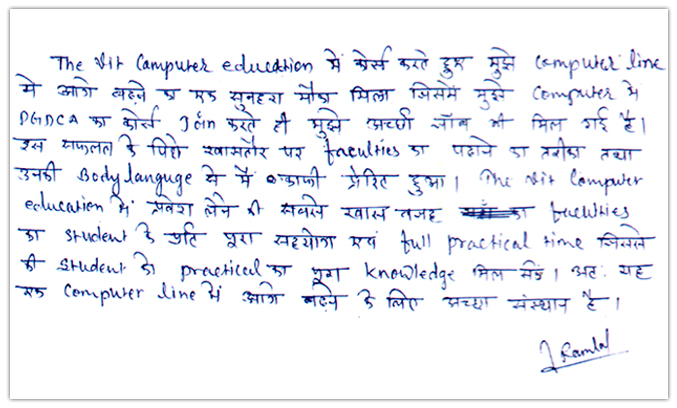 The Vit Computer education में कोर्स करते हुए मुझे Computer line
मे आगे बढ़ने का एक सुनहरा मौका मिला जिसमें मुझे Computer मे
PGDCA का कोर्स Join करते ही मुझे अच्छी जॉब भी मिल गई है।
इस सफलता के पिछे खासतौर पर faculties का पढाने का तरीका तथा
उनकी Body languge से मैं काफी प्रेरित हुआ। The Vit Computer
education में प्रवेश लेने की सबसे खास वजह का faculties
का student के प्रति पूरा सहयोग एवं full practical time जिससे
की student को practical का पूरा knowledge मिल सकें। अतः यह
एक Computer line में आगे बढ़ने के लिए अच्छा संस्थान है।